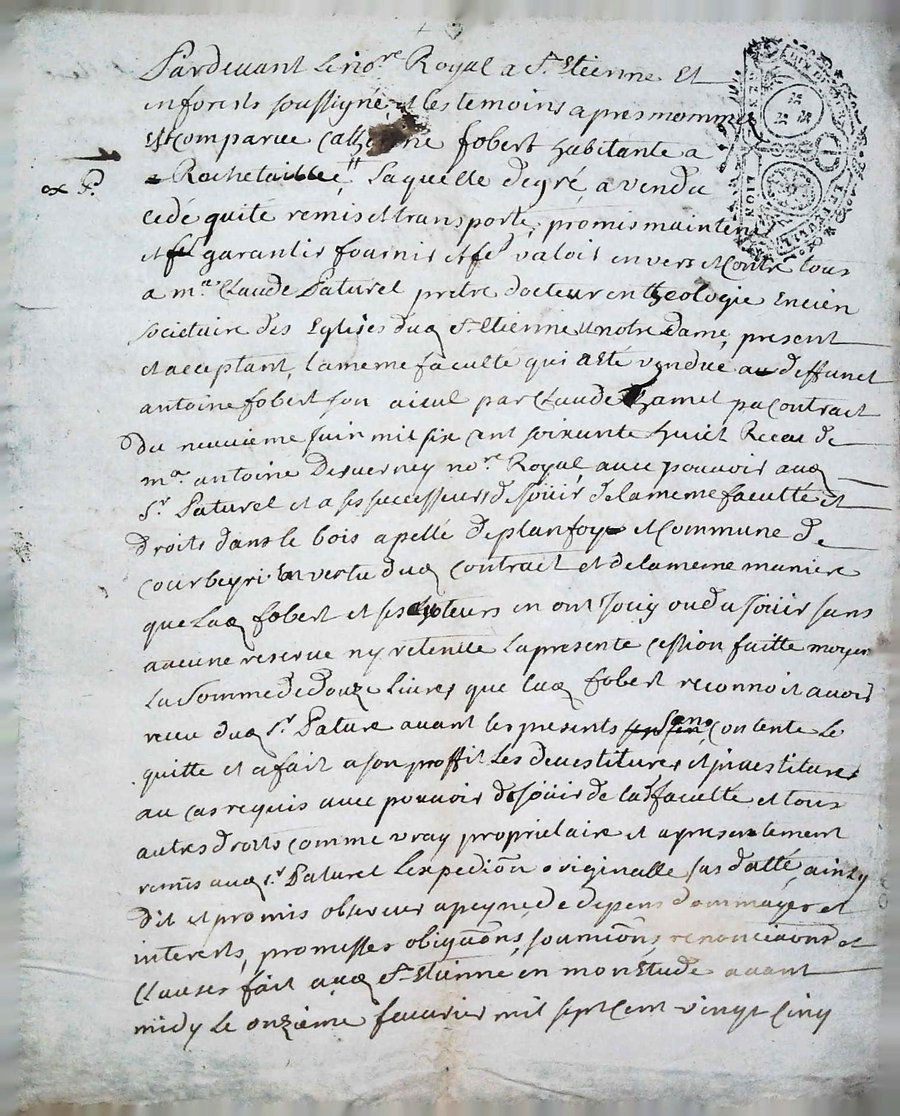 Pardevant le no.re Royal a St. Etienne Et
en forests soussigné et les temoins apres nommes
Est comparue Catherine fobert habitante a
Rochetaillée, Laquelle de gré a vendu
cedé quité remis et transporté, promis maintenir
et garantir fournir et fe. valoir envers et contre tous
a m.re Claude Paturel pretre docteur en theologie Encien
societaire des Eglises dud. St. Etienne et notre Dame, present
et acceptant, la meme faculté qui a esté vendue au deffunct
antoine fobert son aieul par Claude hamet pa Contract
du neuvieme Juin mil six cent soixante huict Receu de
m.re antoine Desverney no.re Royal avec pouvoir aud.
Sr. Paturel et a ses successeurs de Jouir de la meme faculté et
droits dans le bois apellé de planfoy et Commune de
Courbeyri En vertu dud. Contract et de la meme maniere
que lad. fobert et ses auteurs en ont Jouy ou du Jouir sans
aucune reserve ny retenue La presente Cession faitte moyen
La Somme de douze Livres que lad. fobert reconnoit avoir
receu dud. Sr. Paturel avant les presents sen Contente Le
quitte et a fait a son proffit Les devestitures et jnvestitures
au cas requis avec pouvoir de Jouir de lad. faculté et tous
autres droits comme vray proprietaire et a presentement
remis aud. Sr. Paturel L'expediõn originalle sus datté, ainsy
dit et promis observer a peyne de depens dommages et
interests, promesses obigaõns, soumiõns renonciaõns et
Clauses fait aud. St. Etienne en mon Etude avant
midy le onzieme fevrier mil sept Cent vingt Cinq